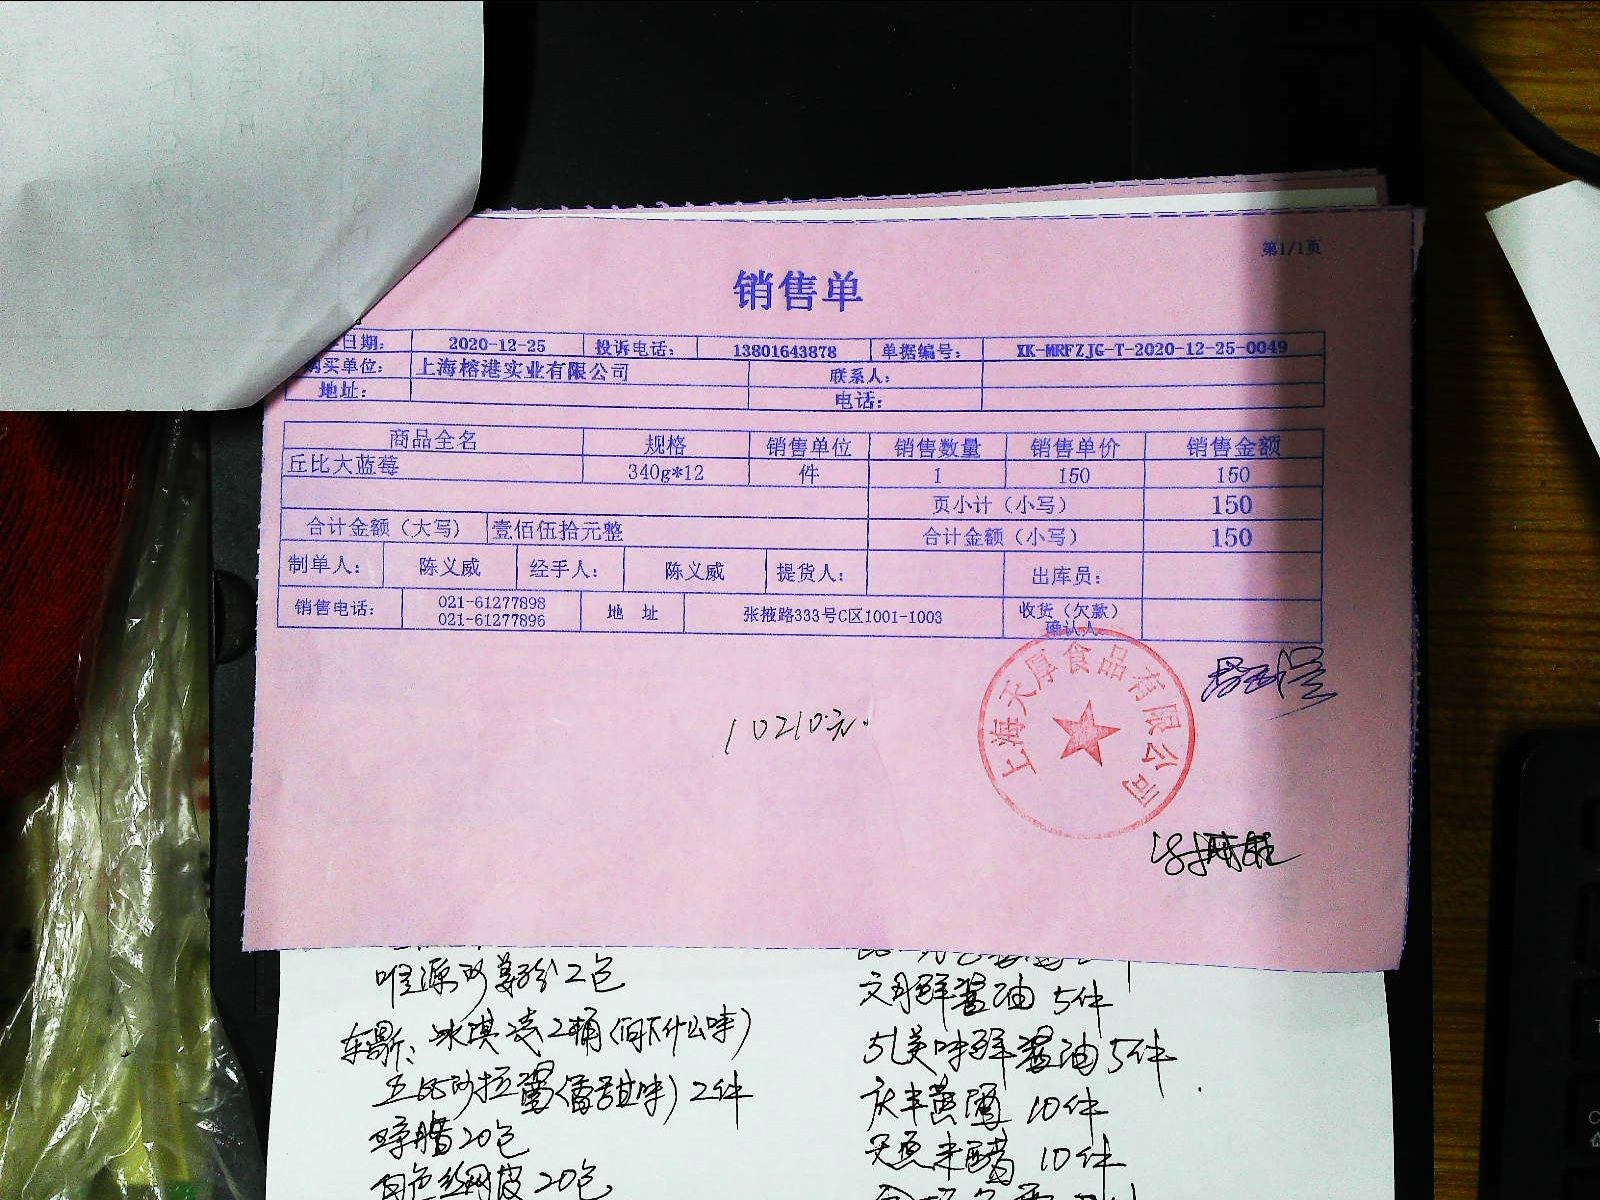 第1/1页
销售单
日期： 2020-12-25 投诉电话： 13801643878 单据编号： XK-MRFZJG-T-2020-12-25-0049
购买单位： 上海榕港实业有限公司 联系人：
地址： 电话：
商品全名 规格 销售单位 销售数量 销售单价 销售金额
丘比大蓝莓 340g*12 件 1 150 150
页小计（小写） 150
合计金额（大写） 壹佰伍拾元整 合计金额（小写） 150
制单人： 陈义威 经手人： 陈义威 提货人： 出库员：
销售电话： 021-61277898 021-61277896 地 址 张掖路333号C区1001-1003 收货（欠款）确认人
上海天厚食品有限公司
10210元.
2包
冰淇凌2桶(什么味)
沙拉酱(香甜味)2件
20包
白色丝网皮20包
鲜酱油 5件
美味鲜酱油5件
10件
米醋 10件